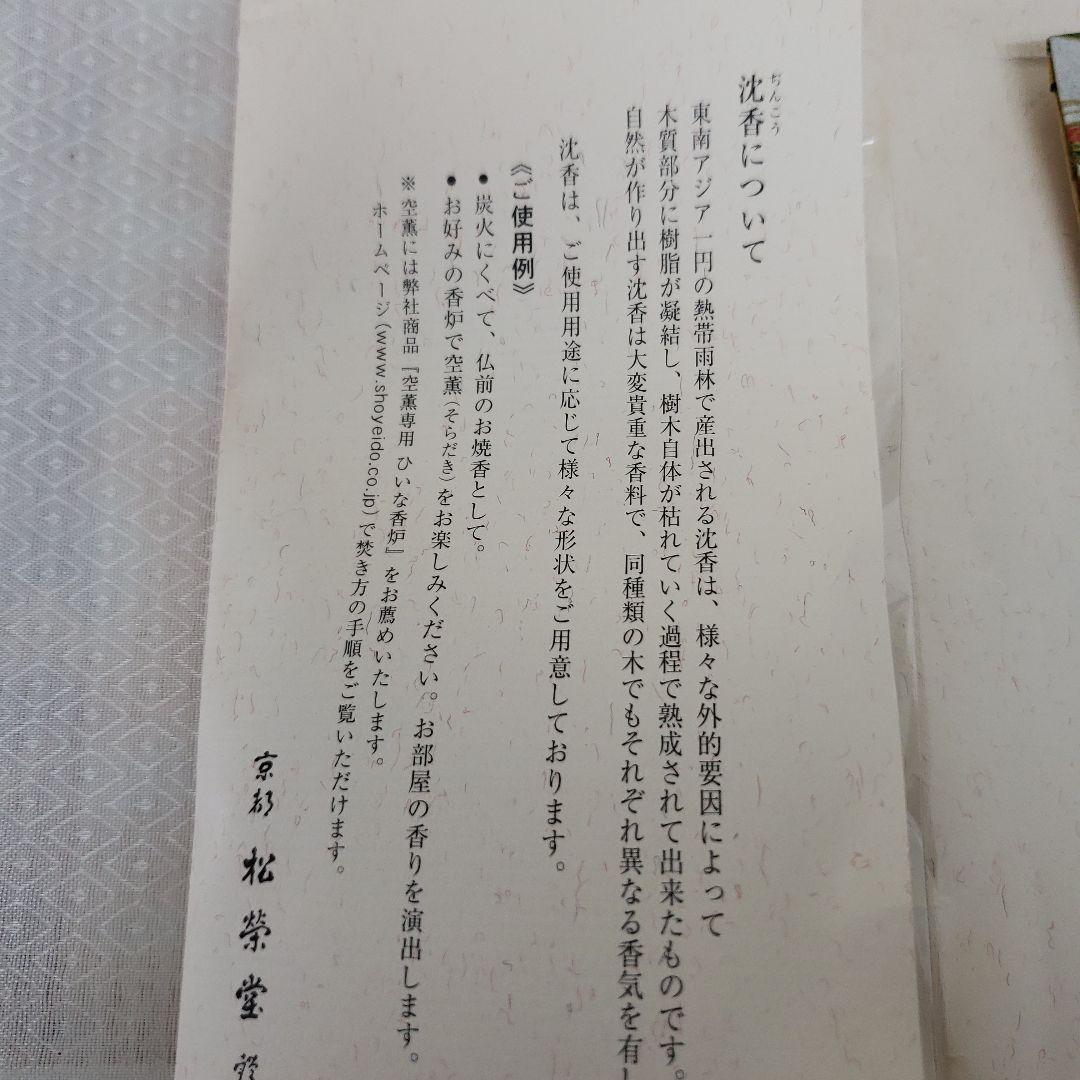 沈香について
ぢんこう
東南アジア一円の熱帯雨林で産出される沈香は、様々な外的要因によって
木質部分に樹脂が凝結し、樹木自体が枯れていく過程で熟成されて出来たものです。
自然が作り出す沈香は大変貴重な香料で、同種類の木でもそれぞれ異なる香気を有し
沈香は、ご使用用途に応じて様々な形状をご用意しております。
《ご使用例》
● 炭火にくべて、仏前のお焼香として。
● お好みの香炉で空薫(そらだき)をお楽しみください。お部屋の香りを演出します。
※空薫には弊社商品『空薫専用 ひいな香炉』をお薦めいたします。
ホームページ(www.shoyeido.co.jp)で焚き方の手順をご覧いただけます。
京都 松榮堂